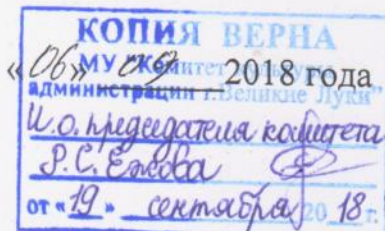 КОПИЯ ВЕРНА
«06» 09 2018 года
МУ "Комитет
администрации г.Великие Луки"
И.о. председателя комитета
Р.С. Ежова
от «19» сентября 2018 г.